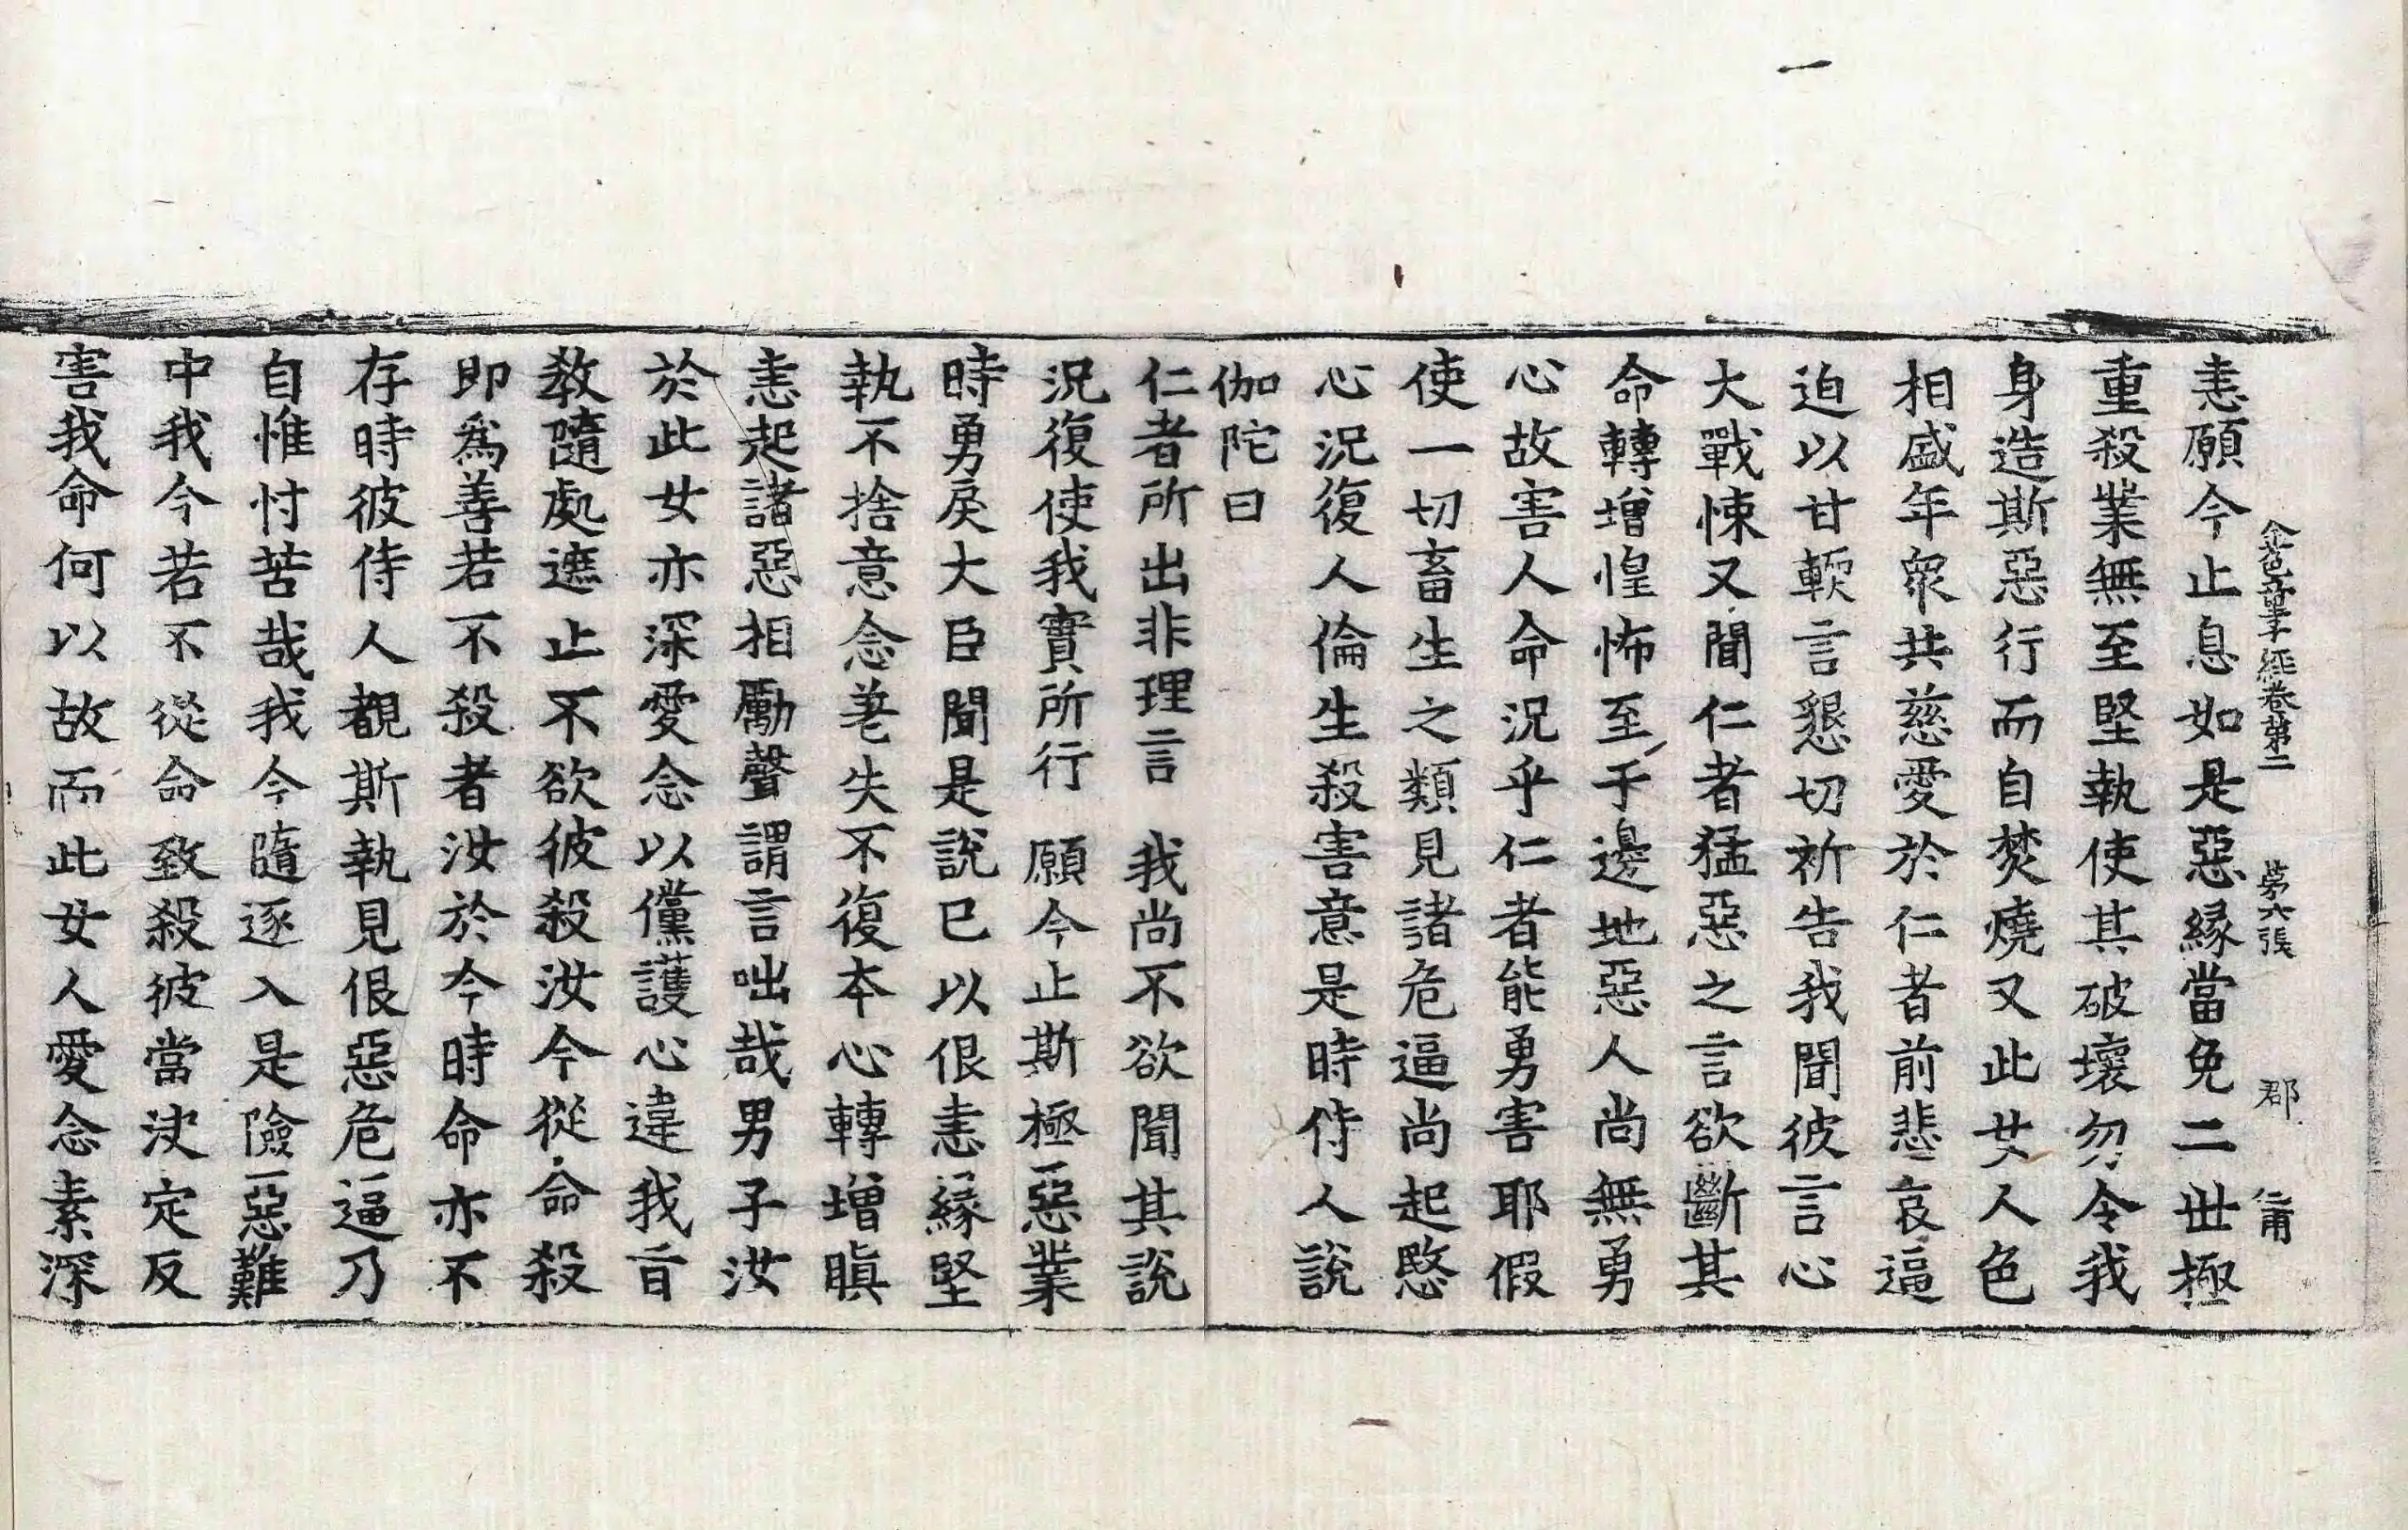 金色童子經卷第二　第六張　郡　仁甫
恚願今止息如是惡緣當免二世極
重殺業無至堅執使其破壞勿令我
身造斯惡行而自焚燒又此女人色
相盛年眾共慈愛於仁者前悲哀逼
迫以甘軟言懇切祈告我聞彼言心
大戰悚又聞仁者猛惡之言欲斷其
命轉增惶怖至于邊地惡人尚無勇
心故害人命況乎仁者能勇害耶假
使一切畜生之類見諸危逼尚起愍
心況復人倫生殺害意是時侍人說
伽陀曰
仁者所出非理言　我尚不欲聞其說
況復使我實所行　願今止斯極惡業
時勇戾大臣聞是說已以佷恚緣堅
執不捨意念荖失不復本心轉增瞋
恚起諸惡相勵聲謂言咄哉男子汝
於此女亦深愛念以儻護心違我旨
教隨處遮止不欲彼殺汝今從命殺
即為善若不殺者汝於今時命亦不
存時彼侍人覩斯執見佷惡危逼乃
自惟忖苦哉我今隨逐入是險惡難
中我今若不從命致殺彼當決定反
害我命何以故而此女人愛念素深